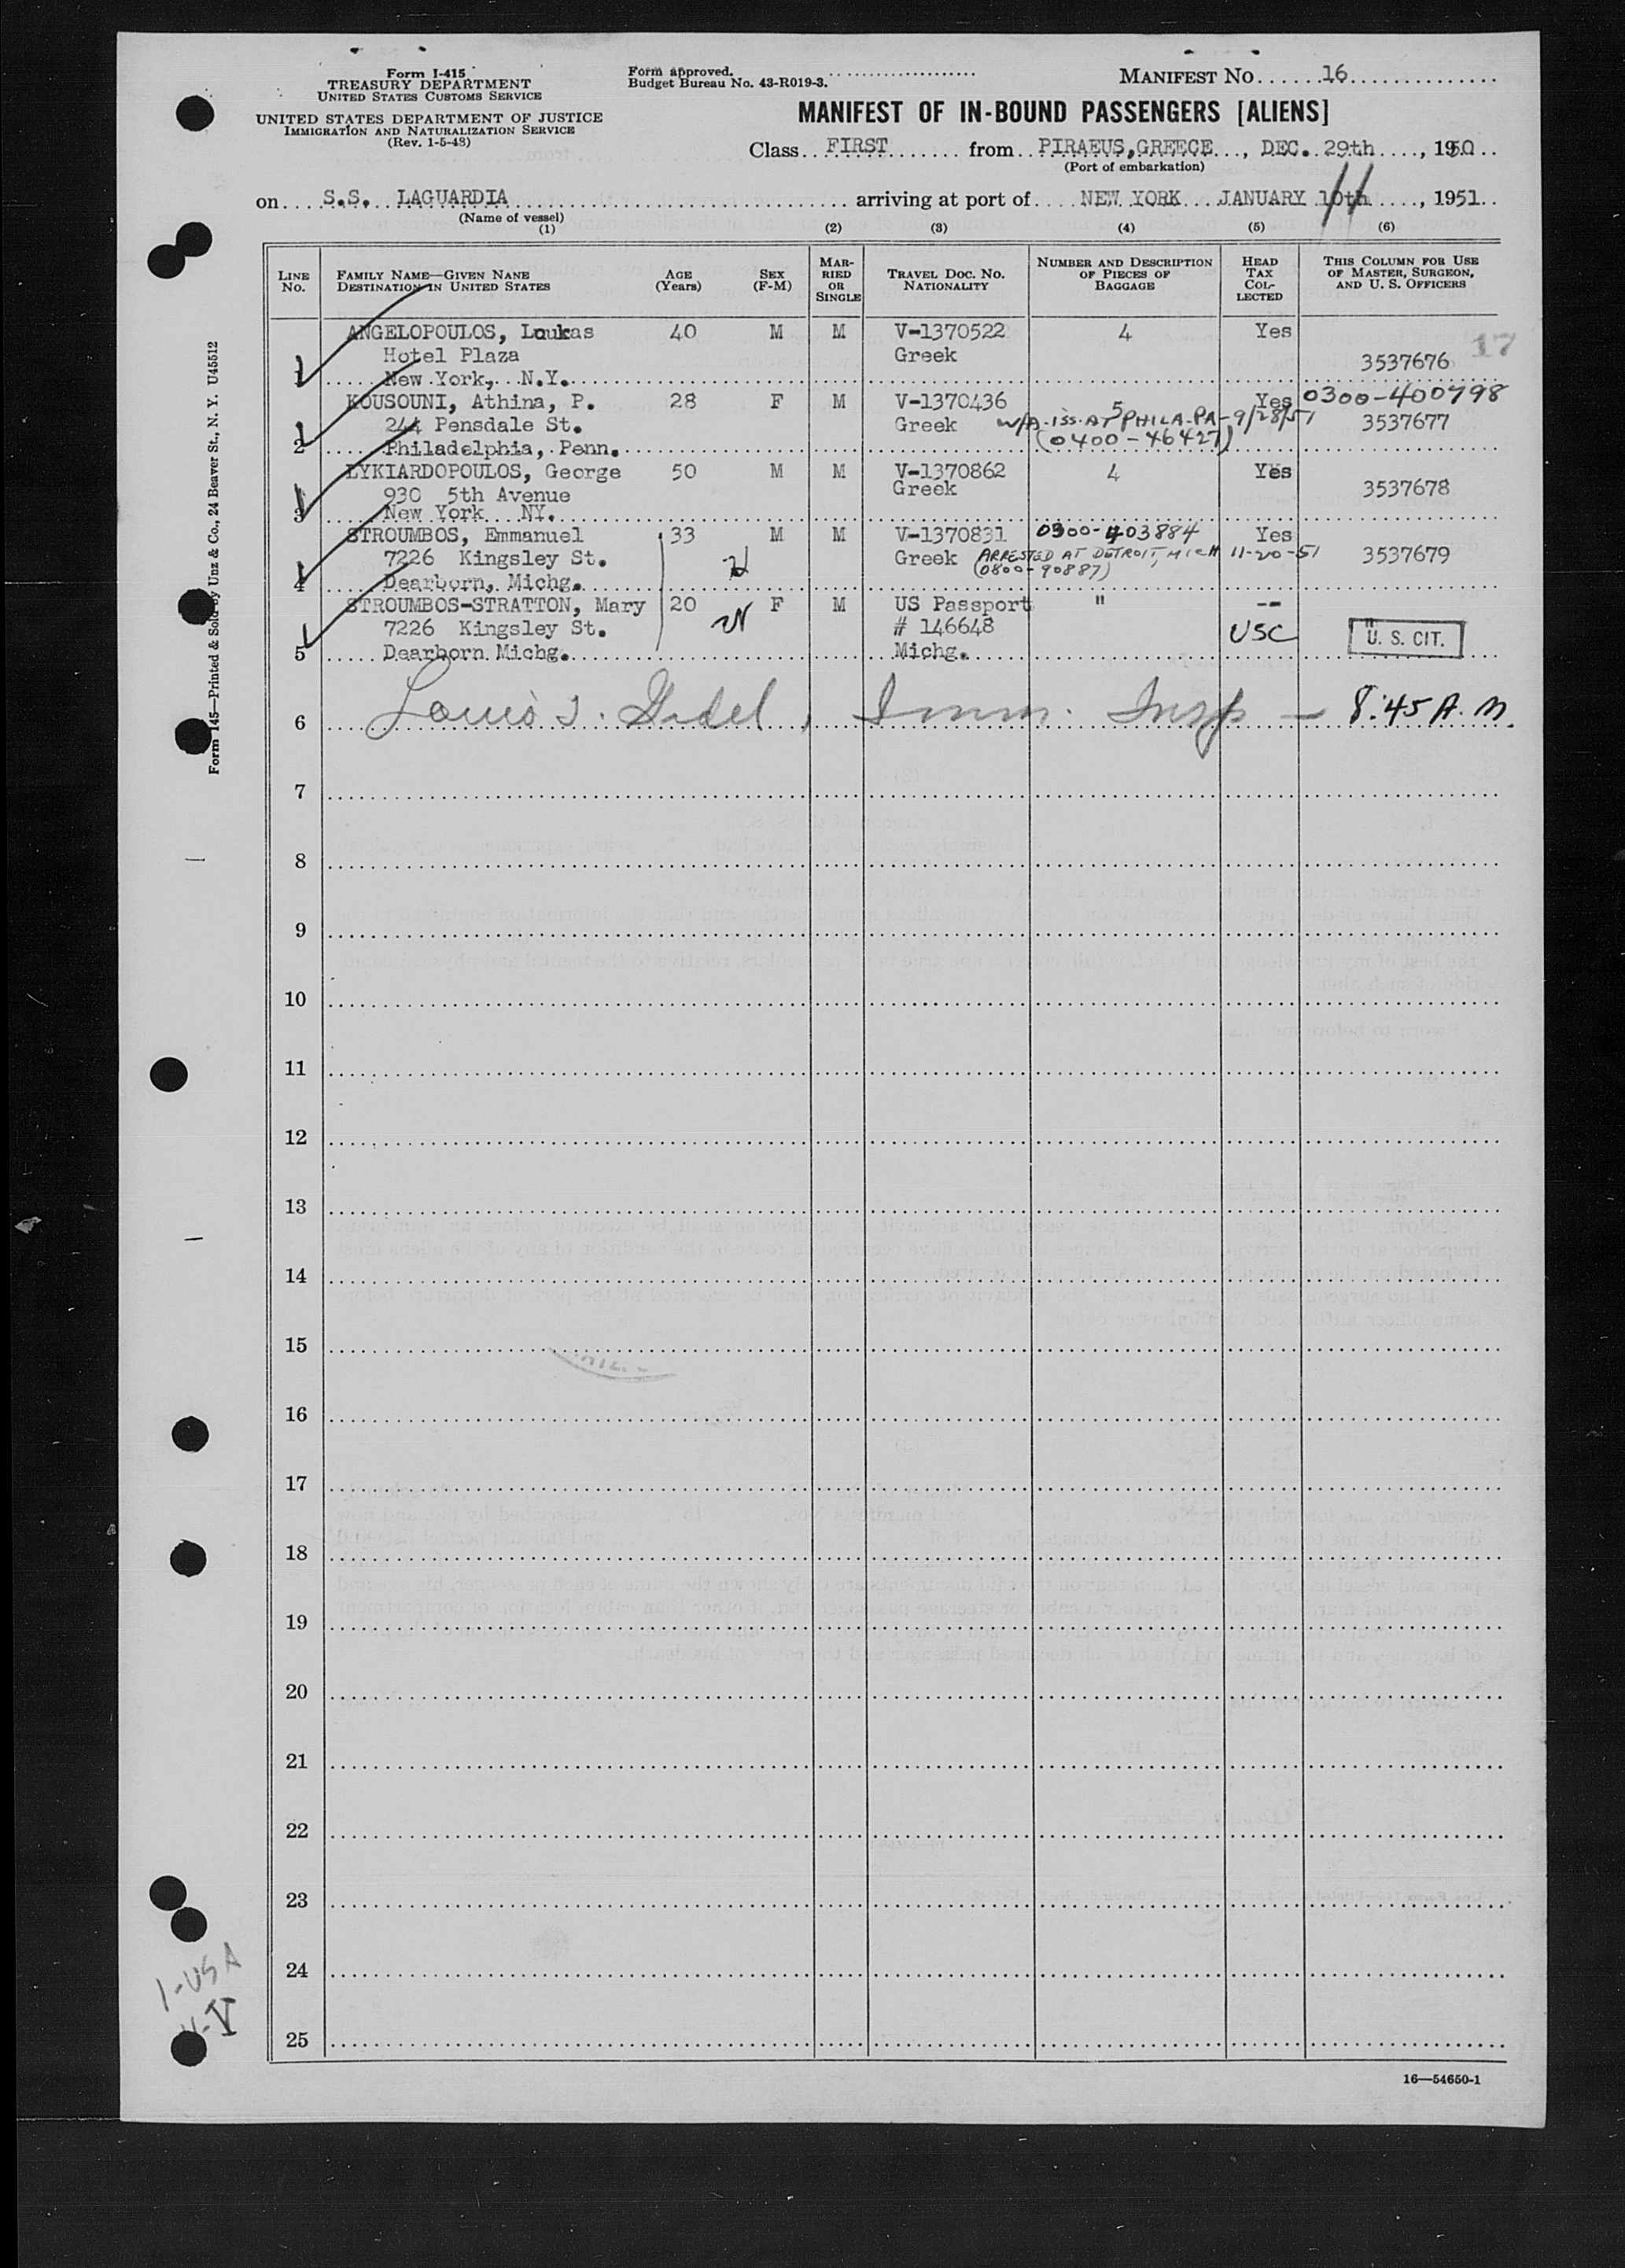 Form I-415
TREASURY DEPARTMENT
UNITED STATES CUSTOMS SERVICE
UNITED STATES DEPARTMENT OF JUSTICE
IMMIGRATION AND NATURALIZATION SERVICE
(Rev. 1-5-48)
Form approved.
Budget Bureau No. 43-R019-3.
MANIFEST NO. 16
MANIFEST OF IN-BOUND PASSENGERS [ALIENS]
Class FIRST from PIRAEUS, GREECE, DEC. 29th, 1950
(Port of embarkation)
on S.S. LAGUARDIA arriving at port of NEW YORK JANUARY 10th 11, 1951
(Name of vessel)
(1) (2) (3) (4) (5) (6)
LINE NO. FAMILY NAME—GIVEN NANE DESTINATION IN UNITED STATES AGE (Years) SEX (F-M) MARRIED OR SINGLE TRAVEL DOC. NO. NATIONALITY NUMBER AND DESCRIPTION OF PIECES OF BAGGAGE HEAD TAX COLLECTED THIS COLUMN FOR USE OF MASTER, SURGEON, AND U. S. OFFICERS
ANGELOPOULOS, Loukas 40 M M V-1370522 4 Yes 17
Hotel Plaza Greek 3537676
1 New York, N.Y.
KOUSOUNI, Athina, P. 28 F M V-1370436 5 Yes 0300-400798
244 Pensdale St. Greek W/A-ISS-AT PHILA-PA-9/28/51 3537677
2 Philadelphia, Penn. (0400-46427)
LYKIARDOPOULOS, George 50 M M V-1370862 4 Yes
930 5th Avenue Greek 3537678
3 New York NY.
STROUMBOS, Emmanuel 33 M M V-1370831 0300-403884 Yes
7226 Kingsley St. Greek (ARRESTED AT DETROIT, MICH 11-20-51 3537679
4 Dearborn, Michg. (0800-90887)
STROUMBOS-STRATTON, Mary 20 F M US Passport " --
7226 Kingsley St. # 146648 USC "
5 Dearborn Michg. Michg. U. S. CIT.
6 Louis J. , Imm. Insp — 8:45 A.M.
7
8
9
10
11
12
13
14
15
16
17
18
19
20
21
22
23
24
25
Form 145—Printed & Sold by Unz & Co., 24 Beaver St., N. Y. U45512
1-USA
4-V
16—54650-1